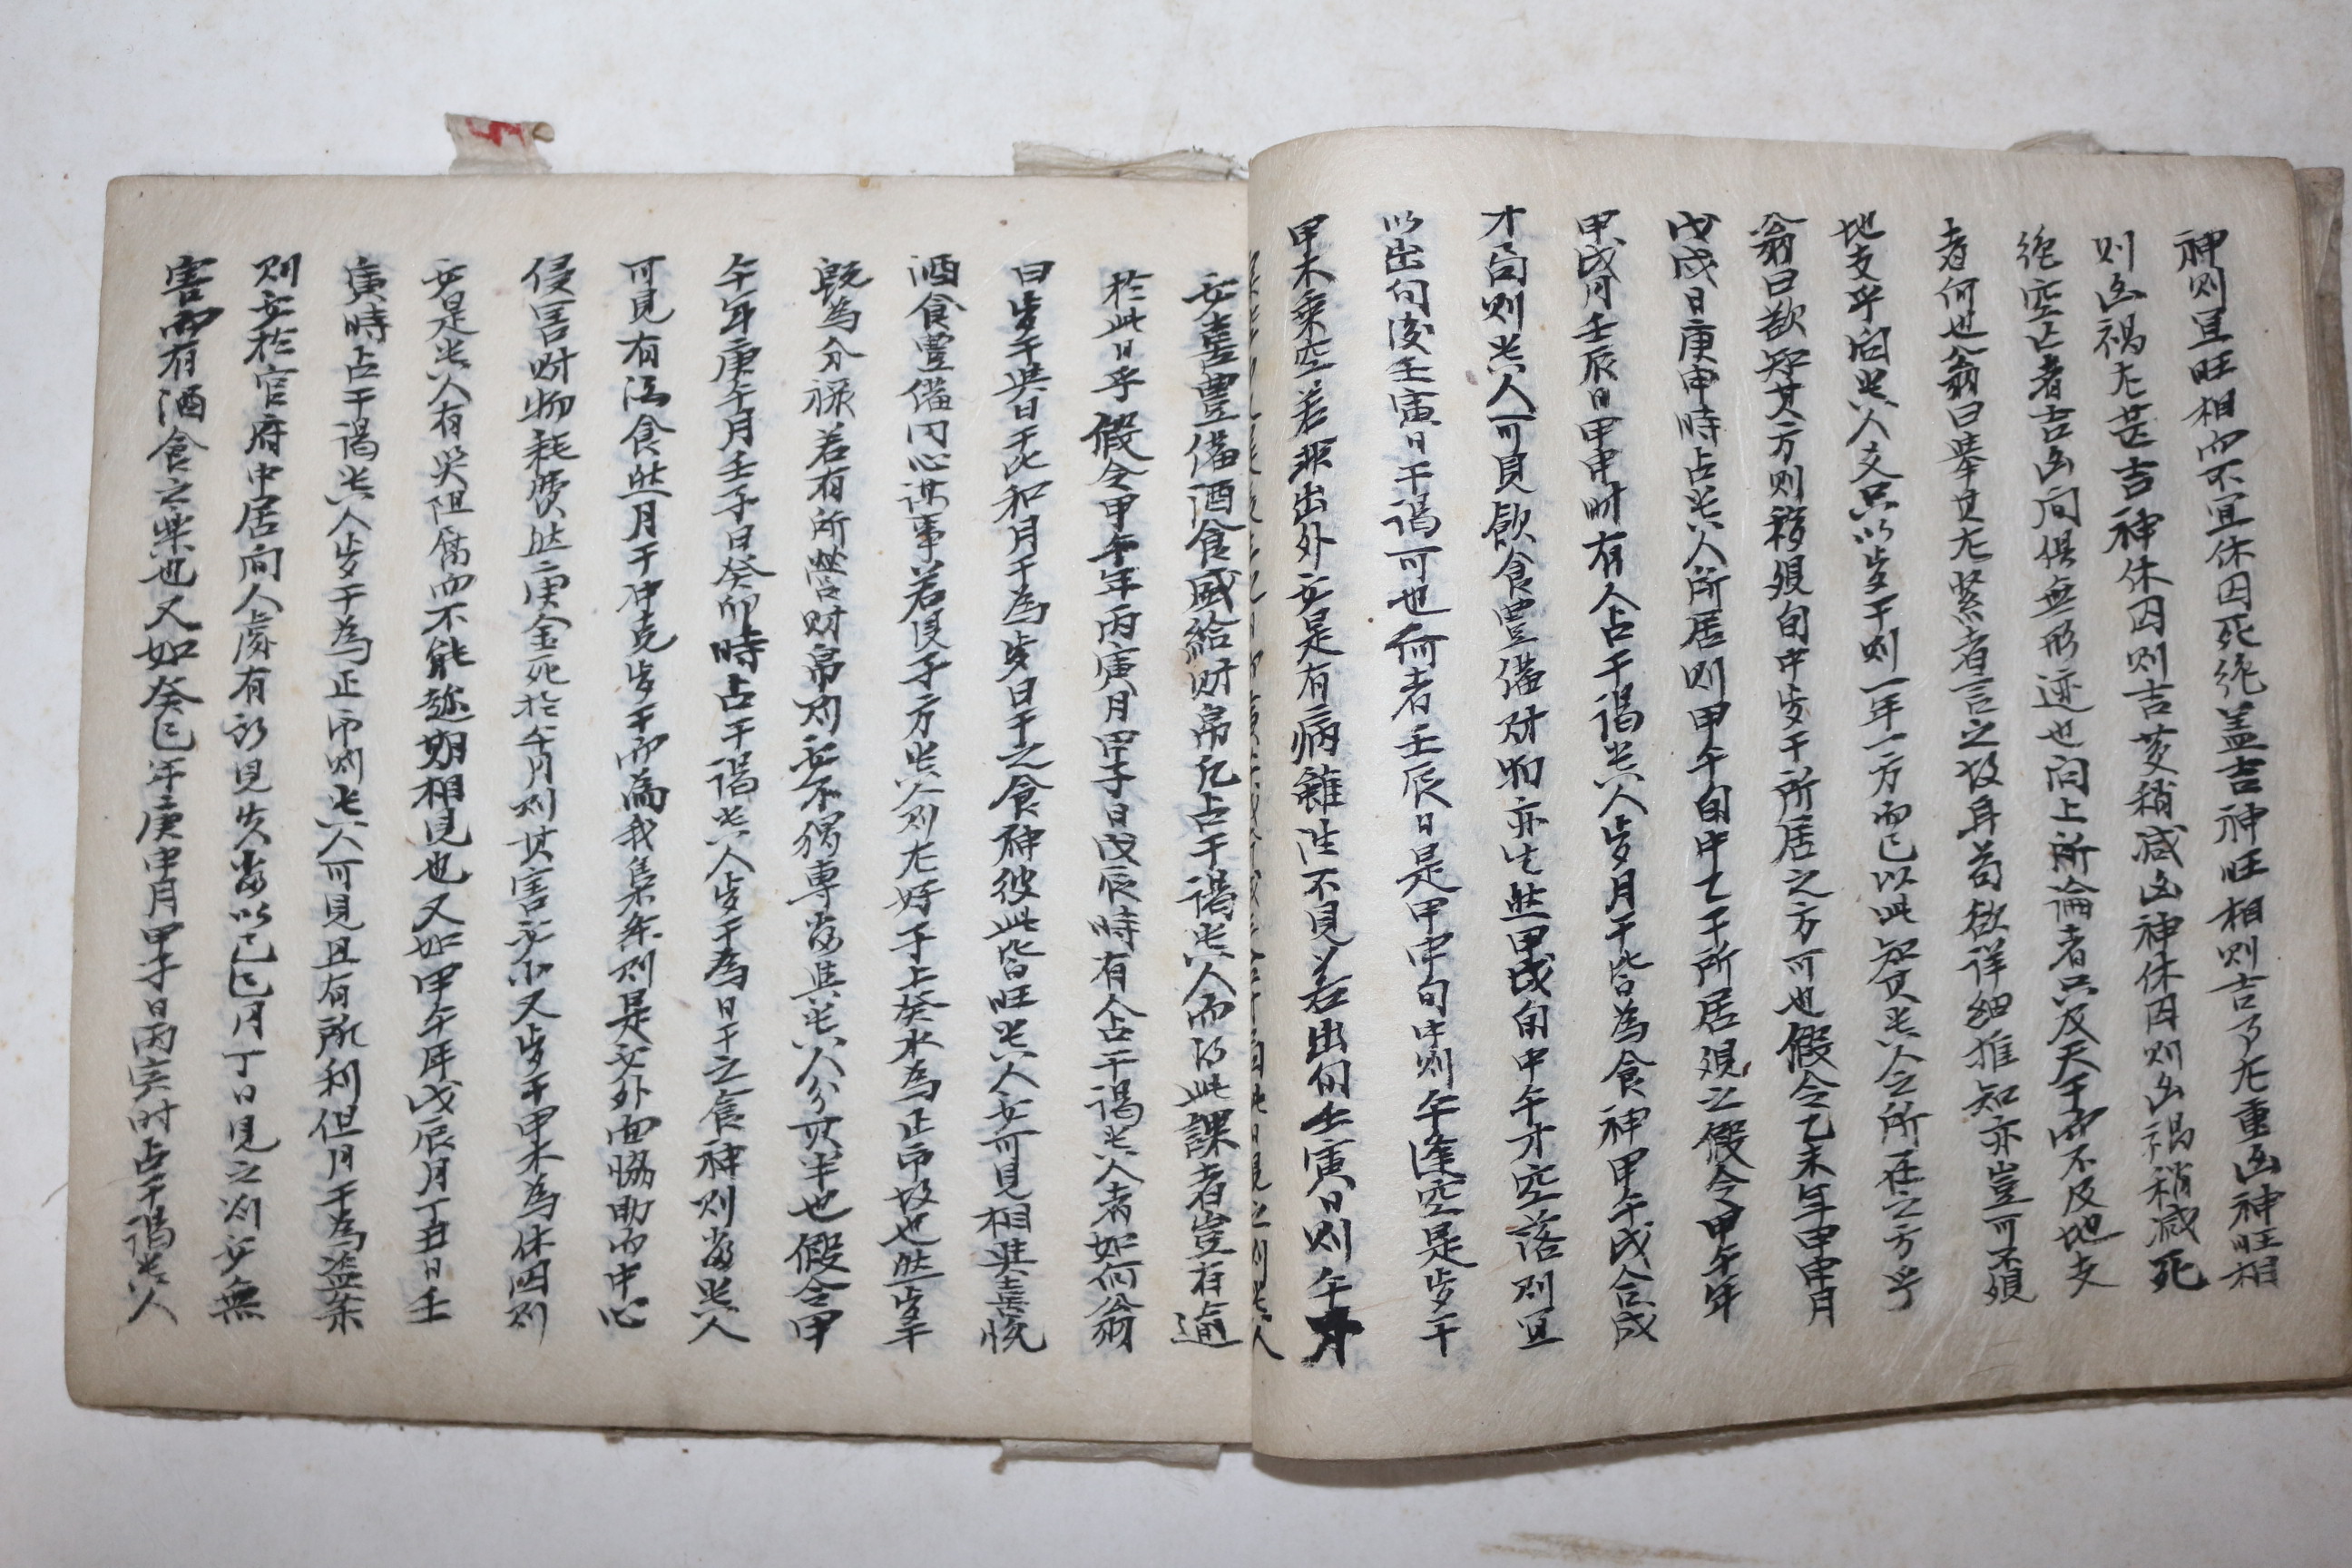 神則宜旺相而不宜休囚死絶盖吉神旺相則吉了尤重凶神旺相
則凶禍尤甚吉神休囚則吉慶稍减凶神休囚則凶禍稍减死
絶空亡者吉凶间俱無形迹也问上所論者只及天干而不及地支
者何也翁曰舉其尤緊者言之故耳苟欲详細推知亦豈可不
地支乎问人支只以歩干則一年一方而已以此知其人之所在之方乎
翁曰欲知其方則移旬中歩干所居之方可也假令乙未年甲申月
戊戌日庚申時占人所居則甲午旬中乙干所居之假令甲午年
甲戌月壬辰日甲申時有人占干谒人歩月干皆為食神甲午戌合成
才局則人可見飲食豐備財物亦生然甲戌旬中午才空落則宜
以出旬後壬寅日干谒可也何者壬辰日是甲申旬中則午逢空是歩干
甲木乘空若非出外必是有病雖往不見若出旬壬寅日則午才
人
必喜豊備酒食盛給財帛凢占干谒人而得此課者豈有逾
於此日乎假令甲午年丙寅月甲子日戊辰時有人占干谒人者如何翁
曰歩干與日干比和月干為歩日干之食神彼此皆旺人必可見相與喜悦
酒食豊備同心謀事若見于方人則尤好子上癸水為正印故也然歩干
既為分禄若有所営財帛則必不獨專當與人分其半也假令甲
午年庚午月壬子日癸卯時占干谒人歩干為日干之食神則當人
可見有酒食然月干冲克歩干而為我梟煞則是必外面協助而中心
侵害財物耗費然庚金死於午月則其害必小又歩干甲木為休囚則
必是人有災阻脳而不能趂期相見也又如甲午年戊辰月丁丑日壬
寅時占干谒人歩干為正印則人可見且有所利但月干為盗
則必於官府中居间人處有所見失當以己巳月丁日見之則必無
害而有酒食之樂也又如癸巳年庚申月甲子日丙寅时占干谒人